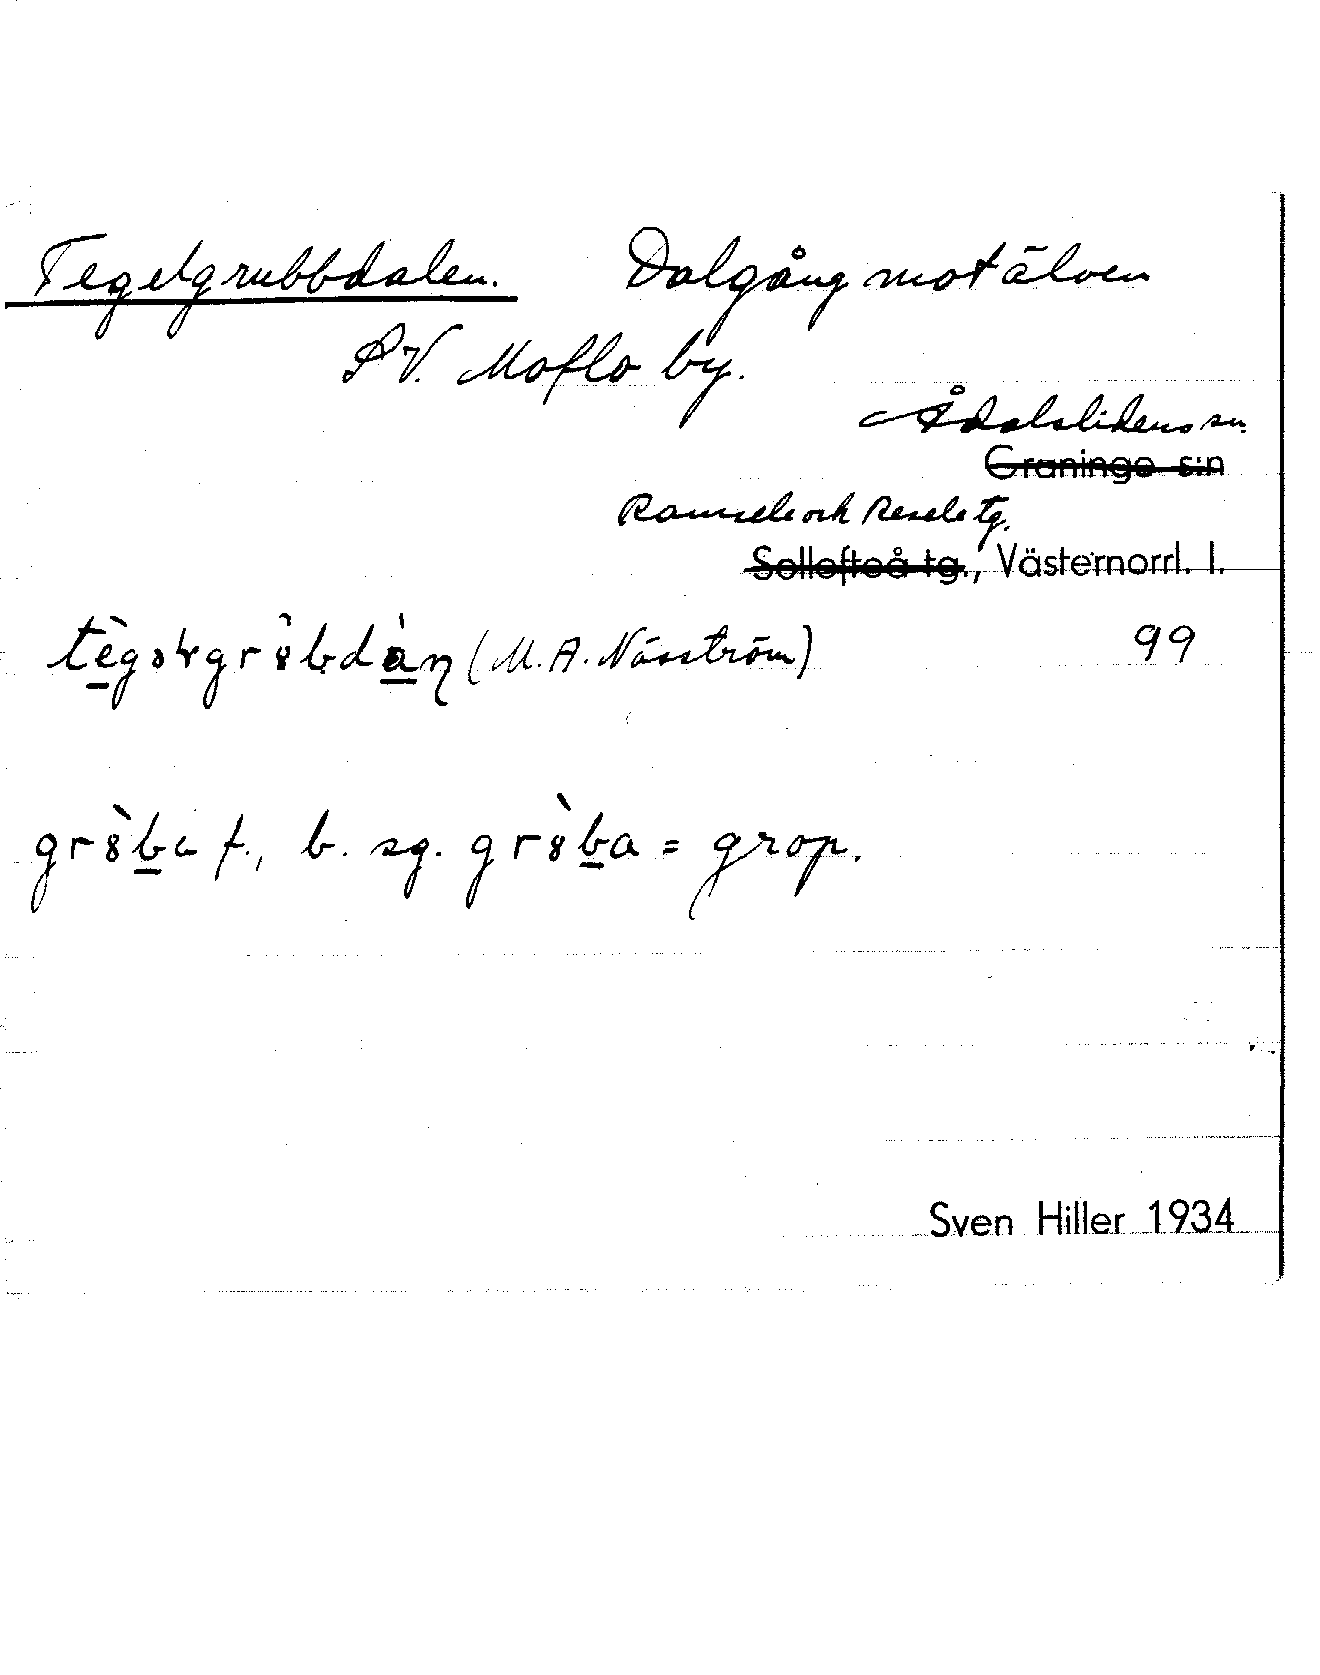 Tegelgrubbdalen. Dalgång mot älven
SV. Moflo by.
Ådalslidens sn.
Graninge s:n
Ramsele och Resele tg.
Sollefteå tg., Västernorrl. l.
(M. A. Näsström) 99
f., b. sg. = grop.
Sven Hiller 1934